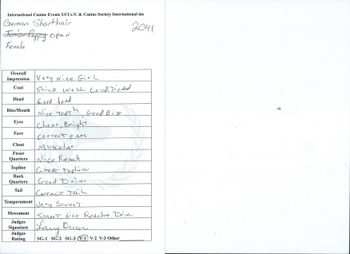 International Canine Events UCI e.V. & Canine Society International inc
German Shorthair
2041
Junior Puppy open
Female
Overall Impression Very Nice Girl
Coat Thick well Conditioned
Head Good head
Bite/Mouth Nice Teeth, Good Bite
Eyes Clear, Bright
Ears Correct ears
Chest Muscular
Front Quarters Nice Reach
Topline Great Topline
Back Quarters Good Drive
Tail Correct Tail
Temperament Very Sweet
Movement Smooth, Nice Reach & Drive
Judges Signature
Judges Rating SG-1 SG-2 SG-3 V-1 V-2 V-3 Other